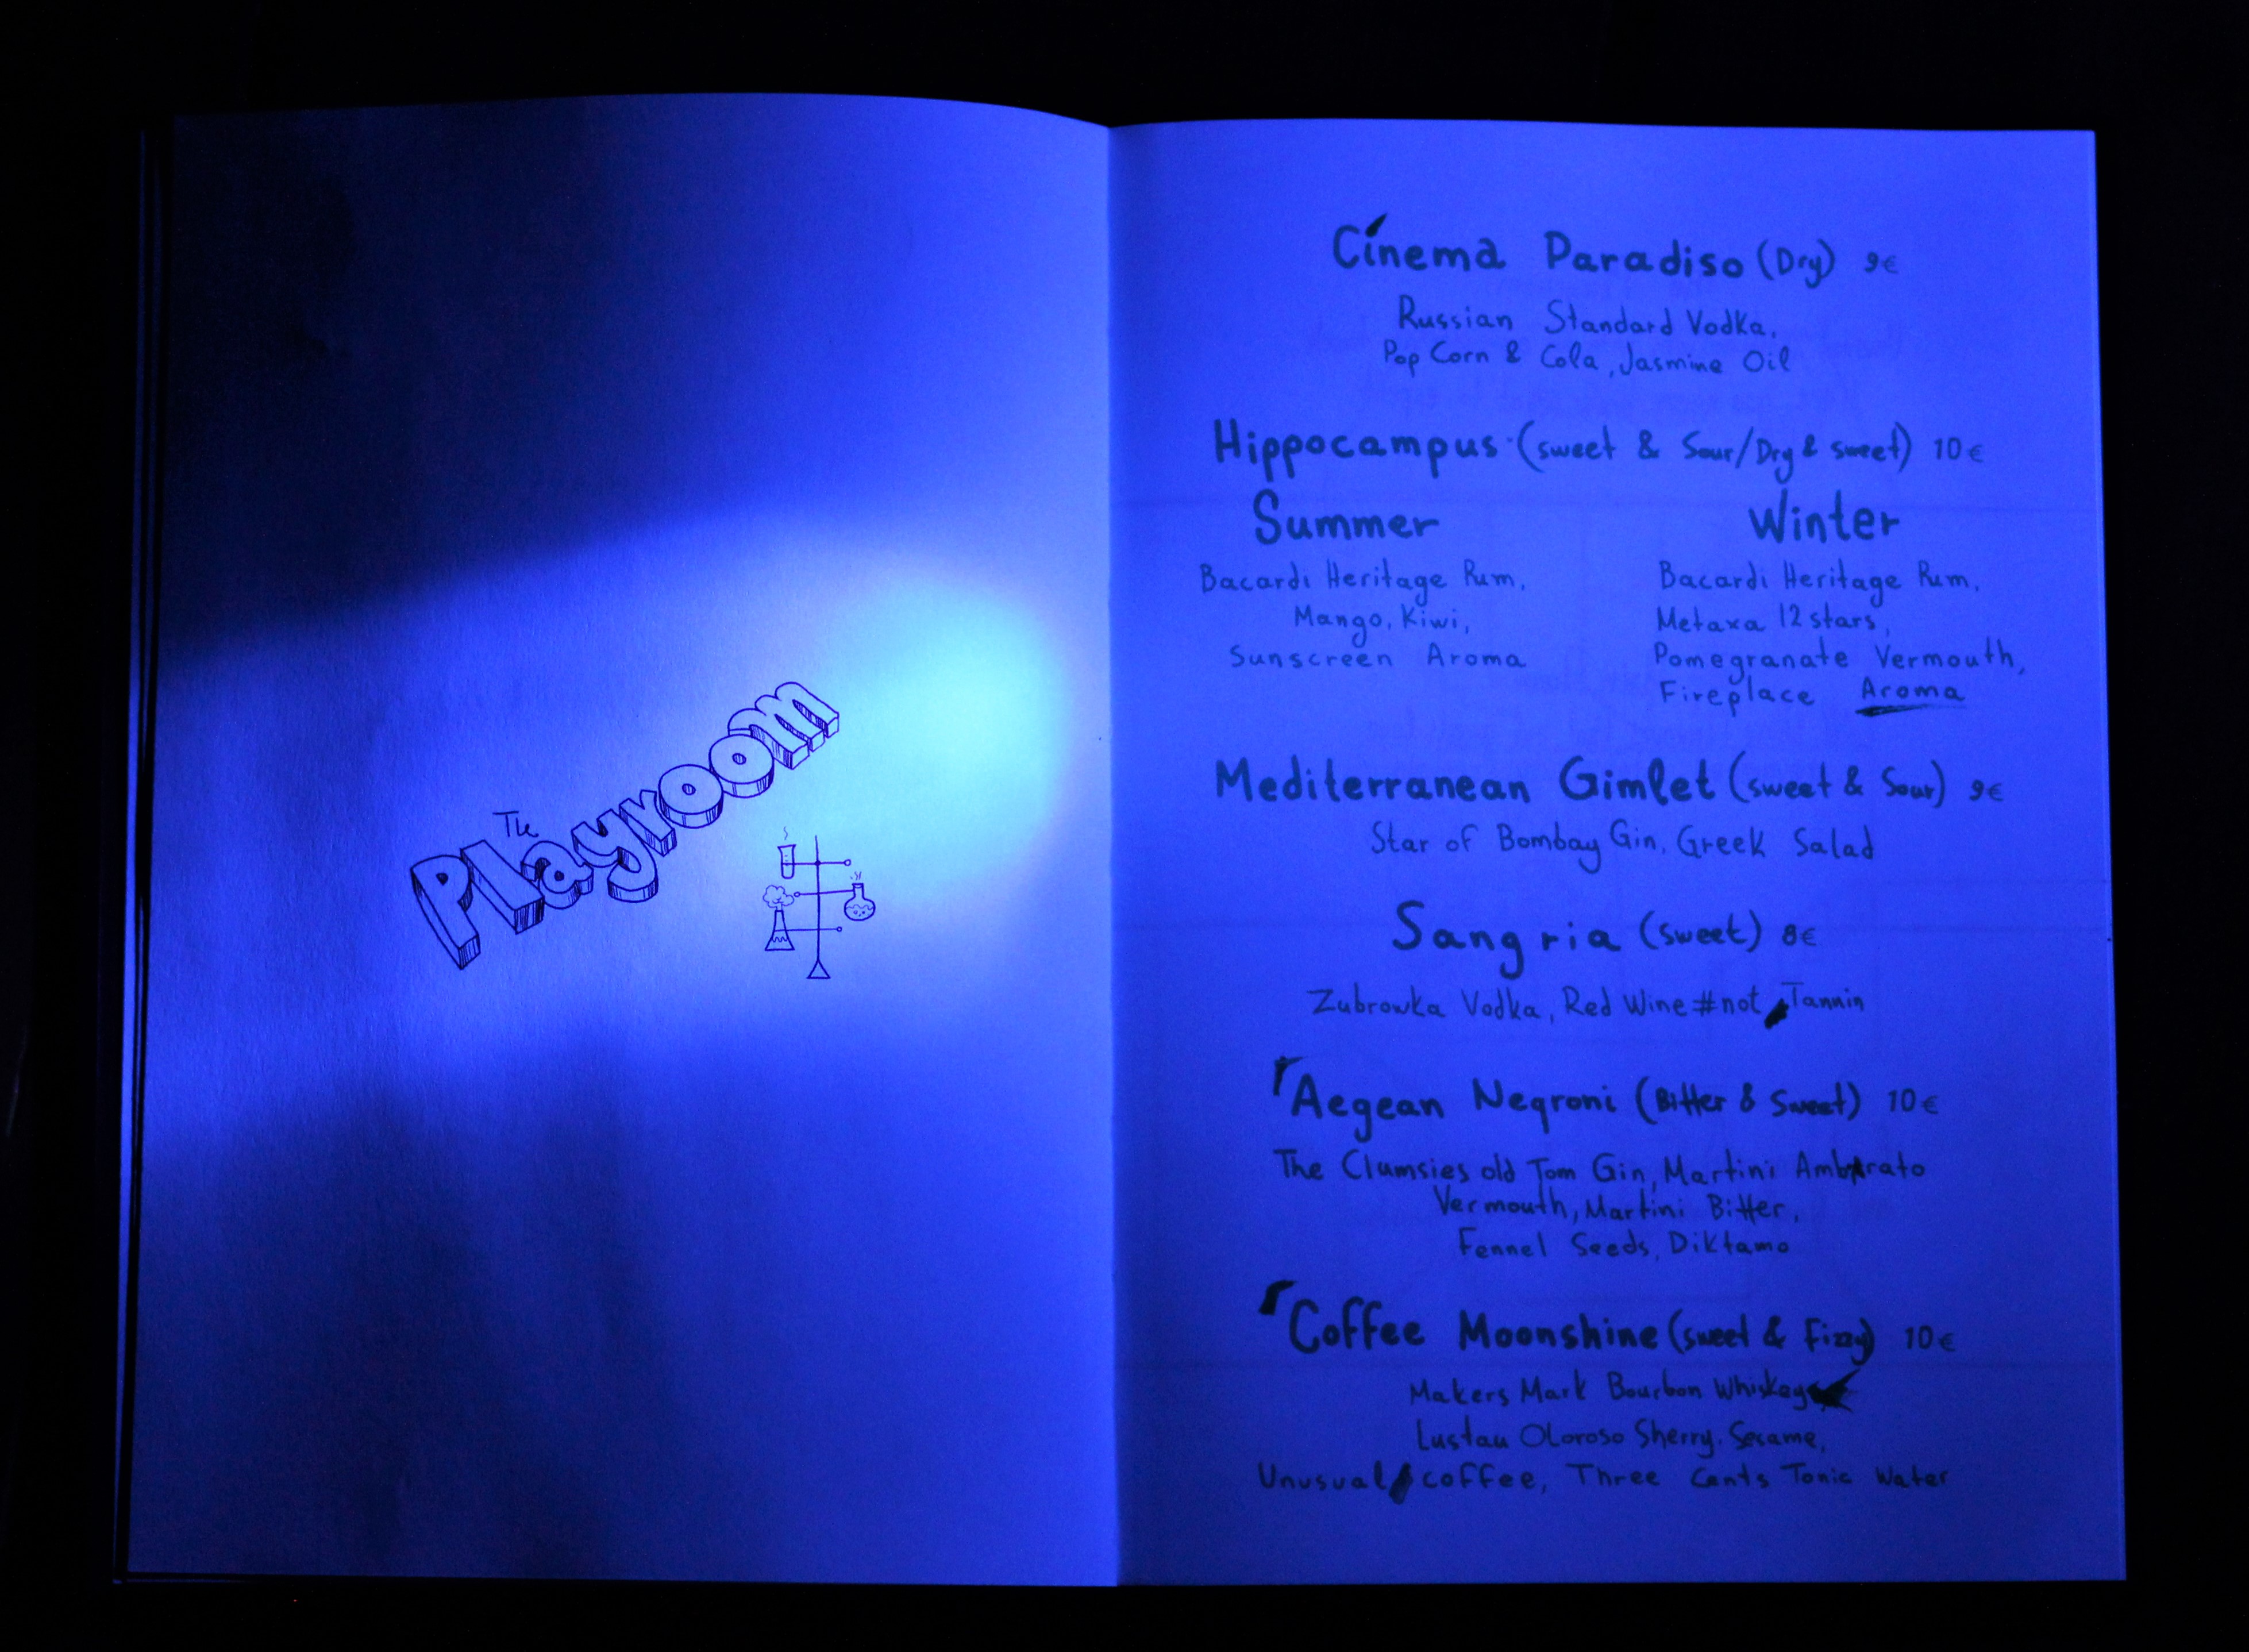 The
Playroom
Cinema Paradiso (Dry) 9€
Russian Standard Vodka,
Pop Corn & Cola, Jasmine Oil
Hippocampus (sweet & Sour/Dry & sweet) 10€
Summer
Bacardi Heritage Rum,
Mango, Kiwi,
Sunscreen Aroma
Winter
Bacardi Heritage Rum,
Metaxa 12 stars,
Pomegranate Vermouth,
Fireplace Aroma
Mediterranean Gimlet (sweet & Sour) 9€
Star of Bombay Gin, Greek Salad
Sangria (sweet) 8€
Zubrowka Vodka, Red Wine #not Tannin
Aegean Negroni (Bitter & Sweet) 10€
The Clumsies old Tom Gin, Martini Ambrato
Vermouth, Martini Bitter,
Fennel Seeds, Diktamo
Coffee Moonshine (sweet & Fizzy) 10€
Makers Mark Bourbon Whiskey
Lustau Oloroso Sherry, Sesame,
Unusual coffee, Three Cents Tonic Water